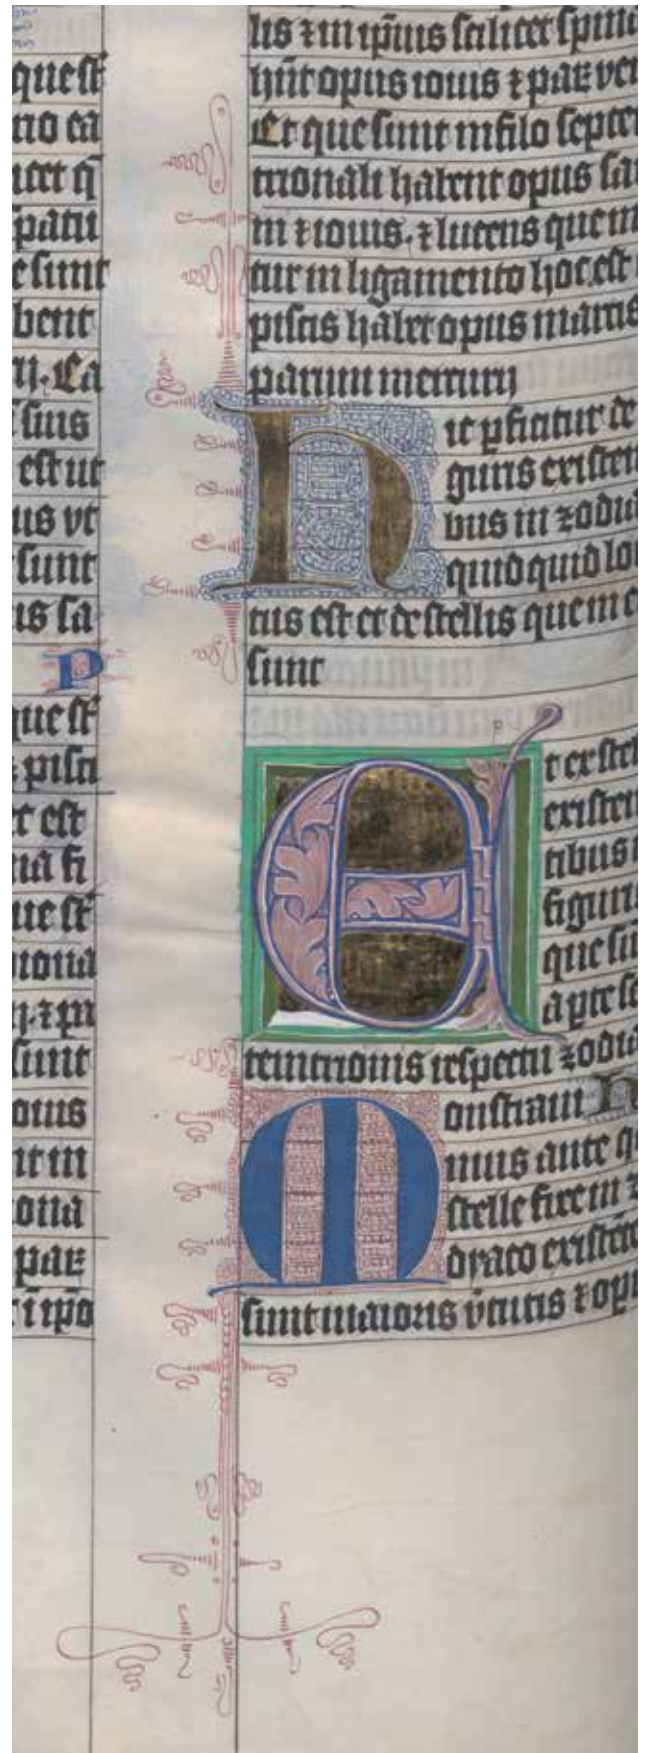 que st̅
no ea
icet q̅
spatii
e sunt
bent
rij. Ca
suis
est ut
us vt
sunt
is sa
P
que st̅
pisci
c est
na fi
ue st̅
iona
ij. ⁊ in
sunt
ouis
nt in
ona
par
t i ip̅o
lis ⁊ in ip̅ius scilicet spini
hn̅t opus iouis ⁊ par ven
Et que sunt in filo septen
trionali habent opus sa
in ⁊ iouis. ⁊ lucens que in
tur in ligamento hoc est
piscis habet opus martis
parum mercurij
Hic ꝑficitur de
guris existen
bus in zodia
quid quid lo
tus est et de stellis que in e
sunt
Et ex stel
existen
tibus
figuris
que su
a ꝑte se
temtrionis respectu zodia
Monstraui N
mus ante q
stelle fixe in z
dyaco existe̅
sunt maioris v̅tutis ⁊ op